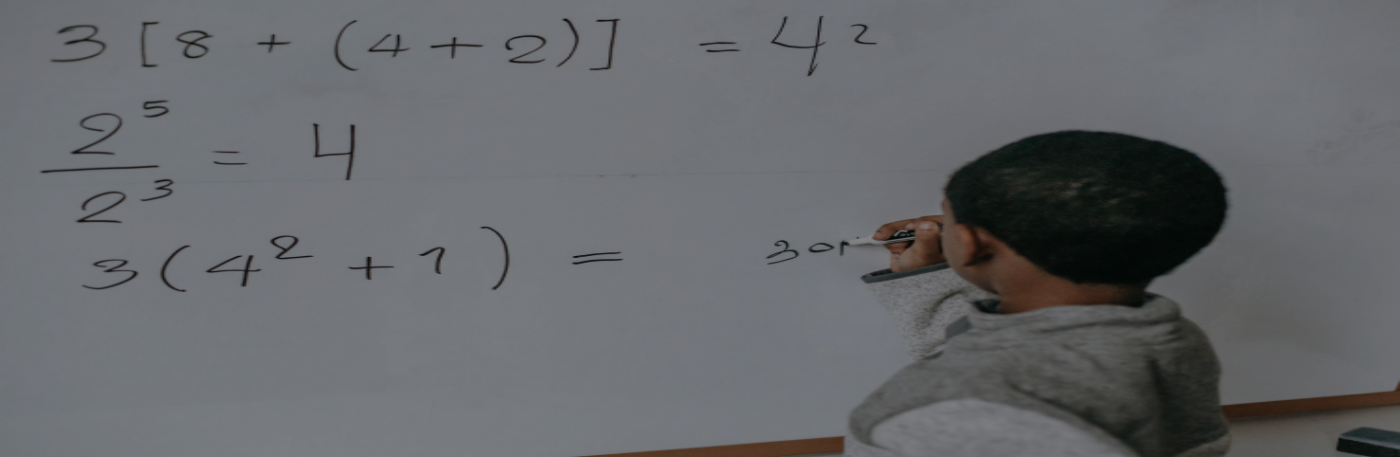 3 [ 8 + (4 + 2)] = 4²
2⁵
2³ = 4
3 (4² + 1) =